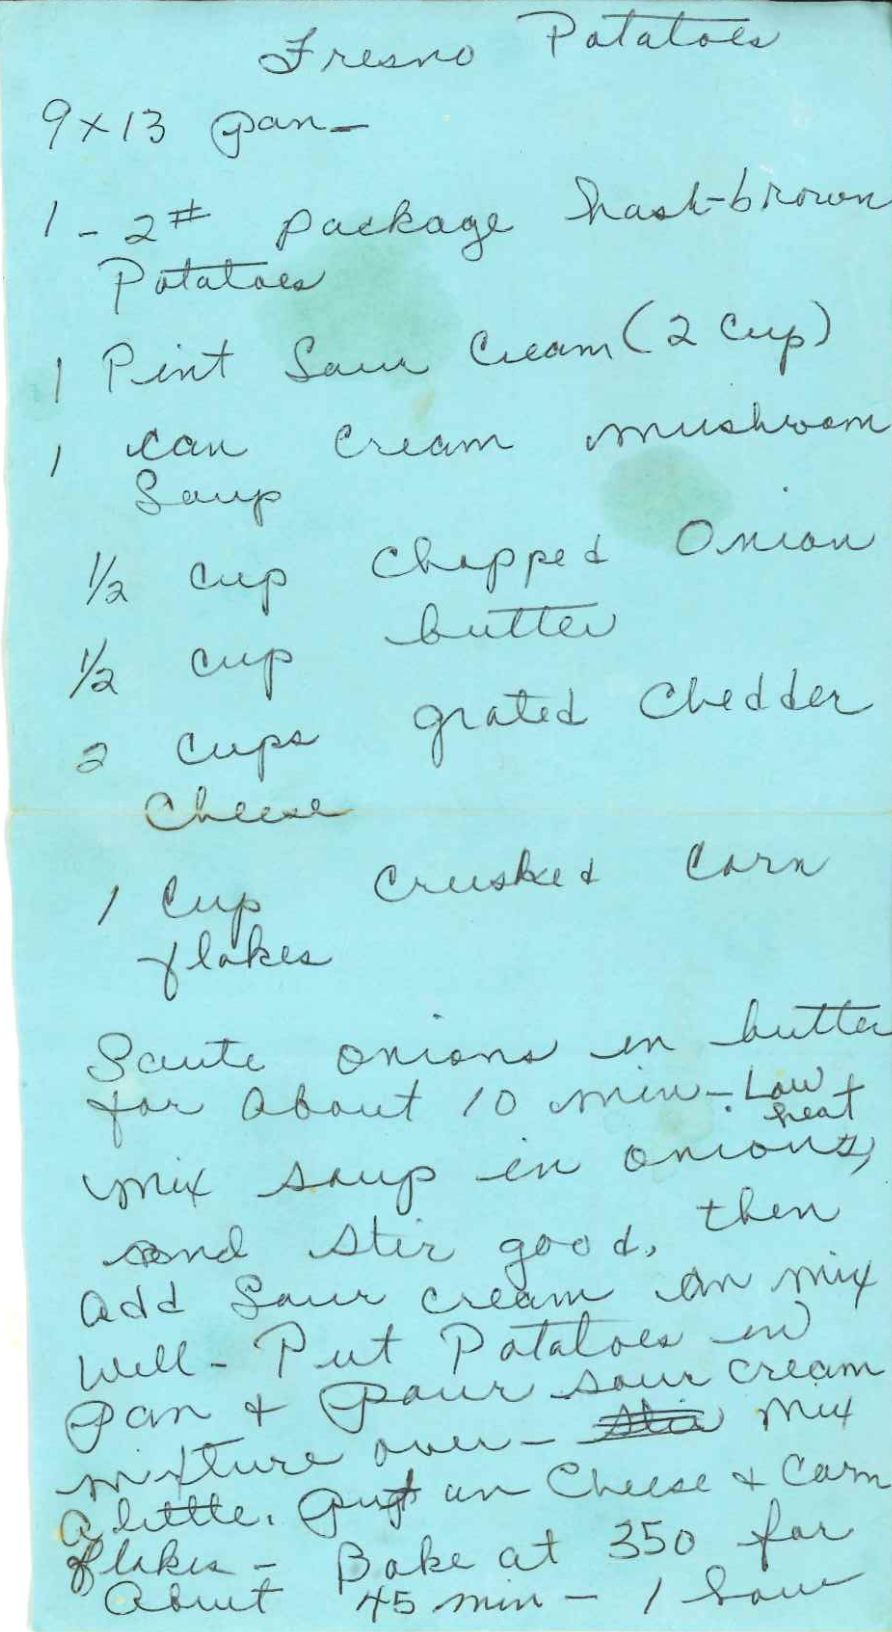 Fresno Potatoes
9x13 pan-
1 - 2# package hash-brown
Potatoes
1 Pint Sour Cream (2 cup)
1 can cream mushroom
Soup
1/2 cup Chopped Onion
1/2 cup butter
2 cups grated Chedder
Cheese
1 Cup Crushed Corn
flakes
Saute onions in butter
for about 10 min - Low +
heat
mix soup in onions,
and stir good, then
add Sour cream an mix
well - Put Potatoes in
Pan + Pour sour cream
mixture over - stir mix
a little. Put on Cheese + Corn
flakes - Bake at 350 for
About 45 min - 1 hour